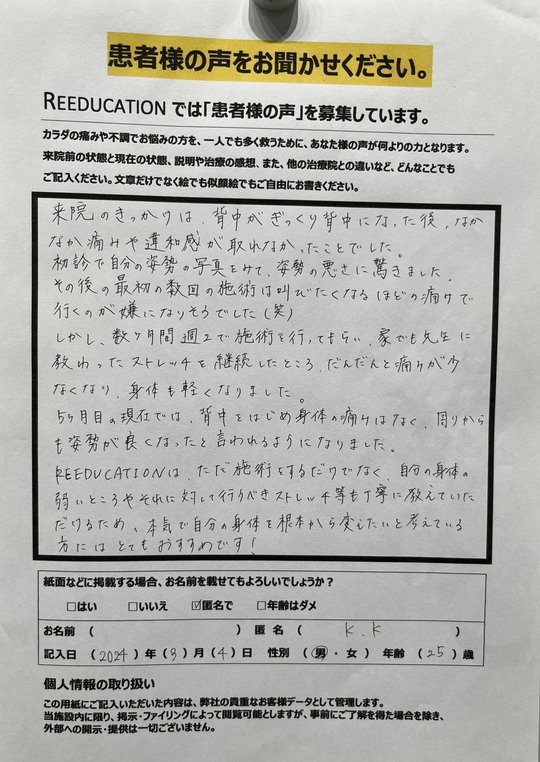 患者様の声をお聞かせください。
REEDUCATION では「患者様の声」を募集しています。
カラダの痛みや不調でお悩みの方を、一人でも多く救うために、あなた様の声が何よりの力となります。
来院前の状態と現在の状態、説明や治療の感想、また、他の治療院との違いなど、どんなことでも
ご記入ください。文章だけでなく絵でも似顔絵でもご自由にお書きください。
来院のきっかけは、背中がぎっくり背中になった後、なか
なか痛みや違和感が取れなかったことでした。
初診で自分の姿勢の写真をみて、姿勢の悪さに驚きました。
その後の最初の数回の施術は叫びたくなるほどの痛みで
行くのが嫌になりそうでした(笑)
しかし、数ヶ月間週2で施術を行ってもらい、家でも先生に
教わったストレッチを継続したところ、だんだんと痛みが少
なくなり、身体も軽くなりました。
5ヶ月目の現在では、背中をはじめ身体の痛みはなく、周りから
も姿勢が良くなったと言われるようになりました。
REEDUCATIONは、ただ施術をするだけでなく、自分の身体の
弱いところやそれに対して行うべきストレッチ等も丁寧に教えていた
だけるため、本気で自分の身体を根本から変えたいと考えている
方にはとてもおすすめです!
紙面などに掲載する場合、お名前を載せてもよろしいでしょうか?
□はい □いいえ ☑匿名で □年齢はダメ
お名前 ( ) 匿名 ( K.K )
記入日 (2024)年(3)月(4)日 性別 (男・女) 年齢 (25)歳
個人情報の取り扱い
この用紙にご記入いただいた内容は、弊社の貴重なお客様データとして管理します。
当施設内に限り、掲示・ファイリングによって閲覧可能としますが、事前にご了解を得た場合を除き、
外部への開示・提供は一切ございません。